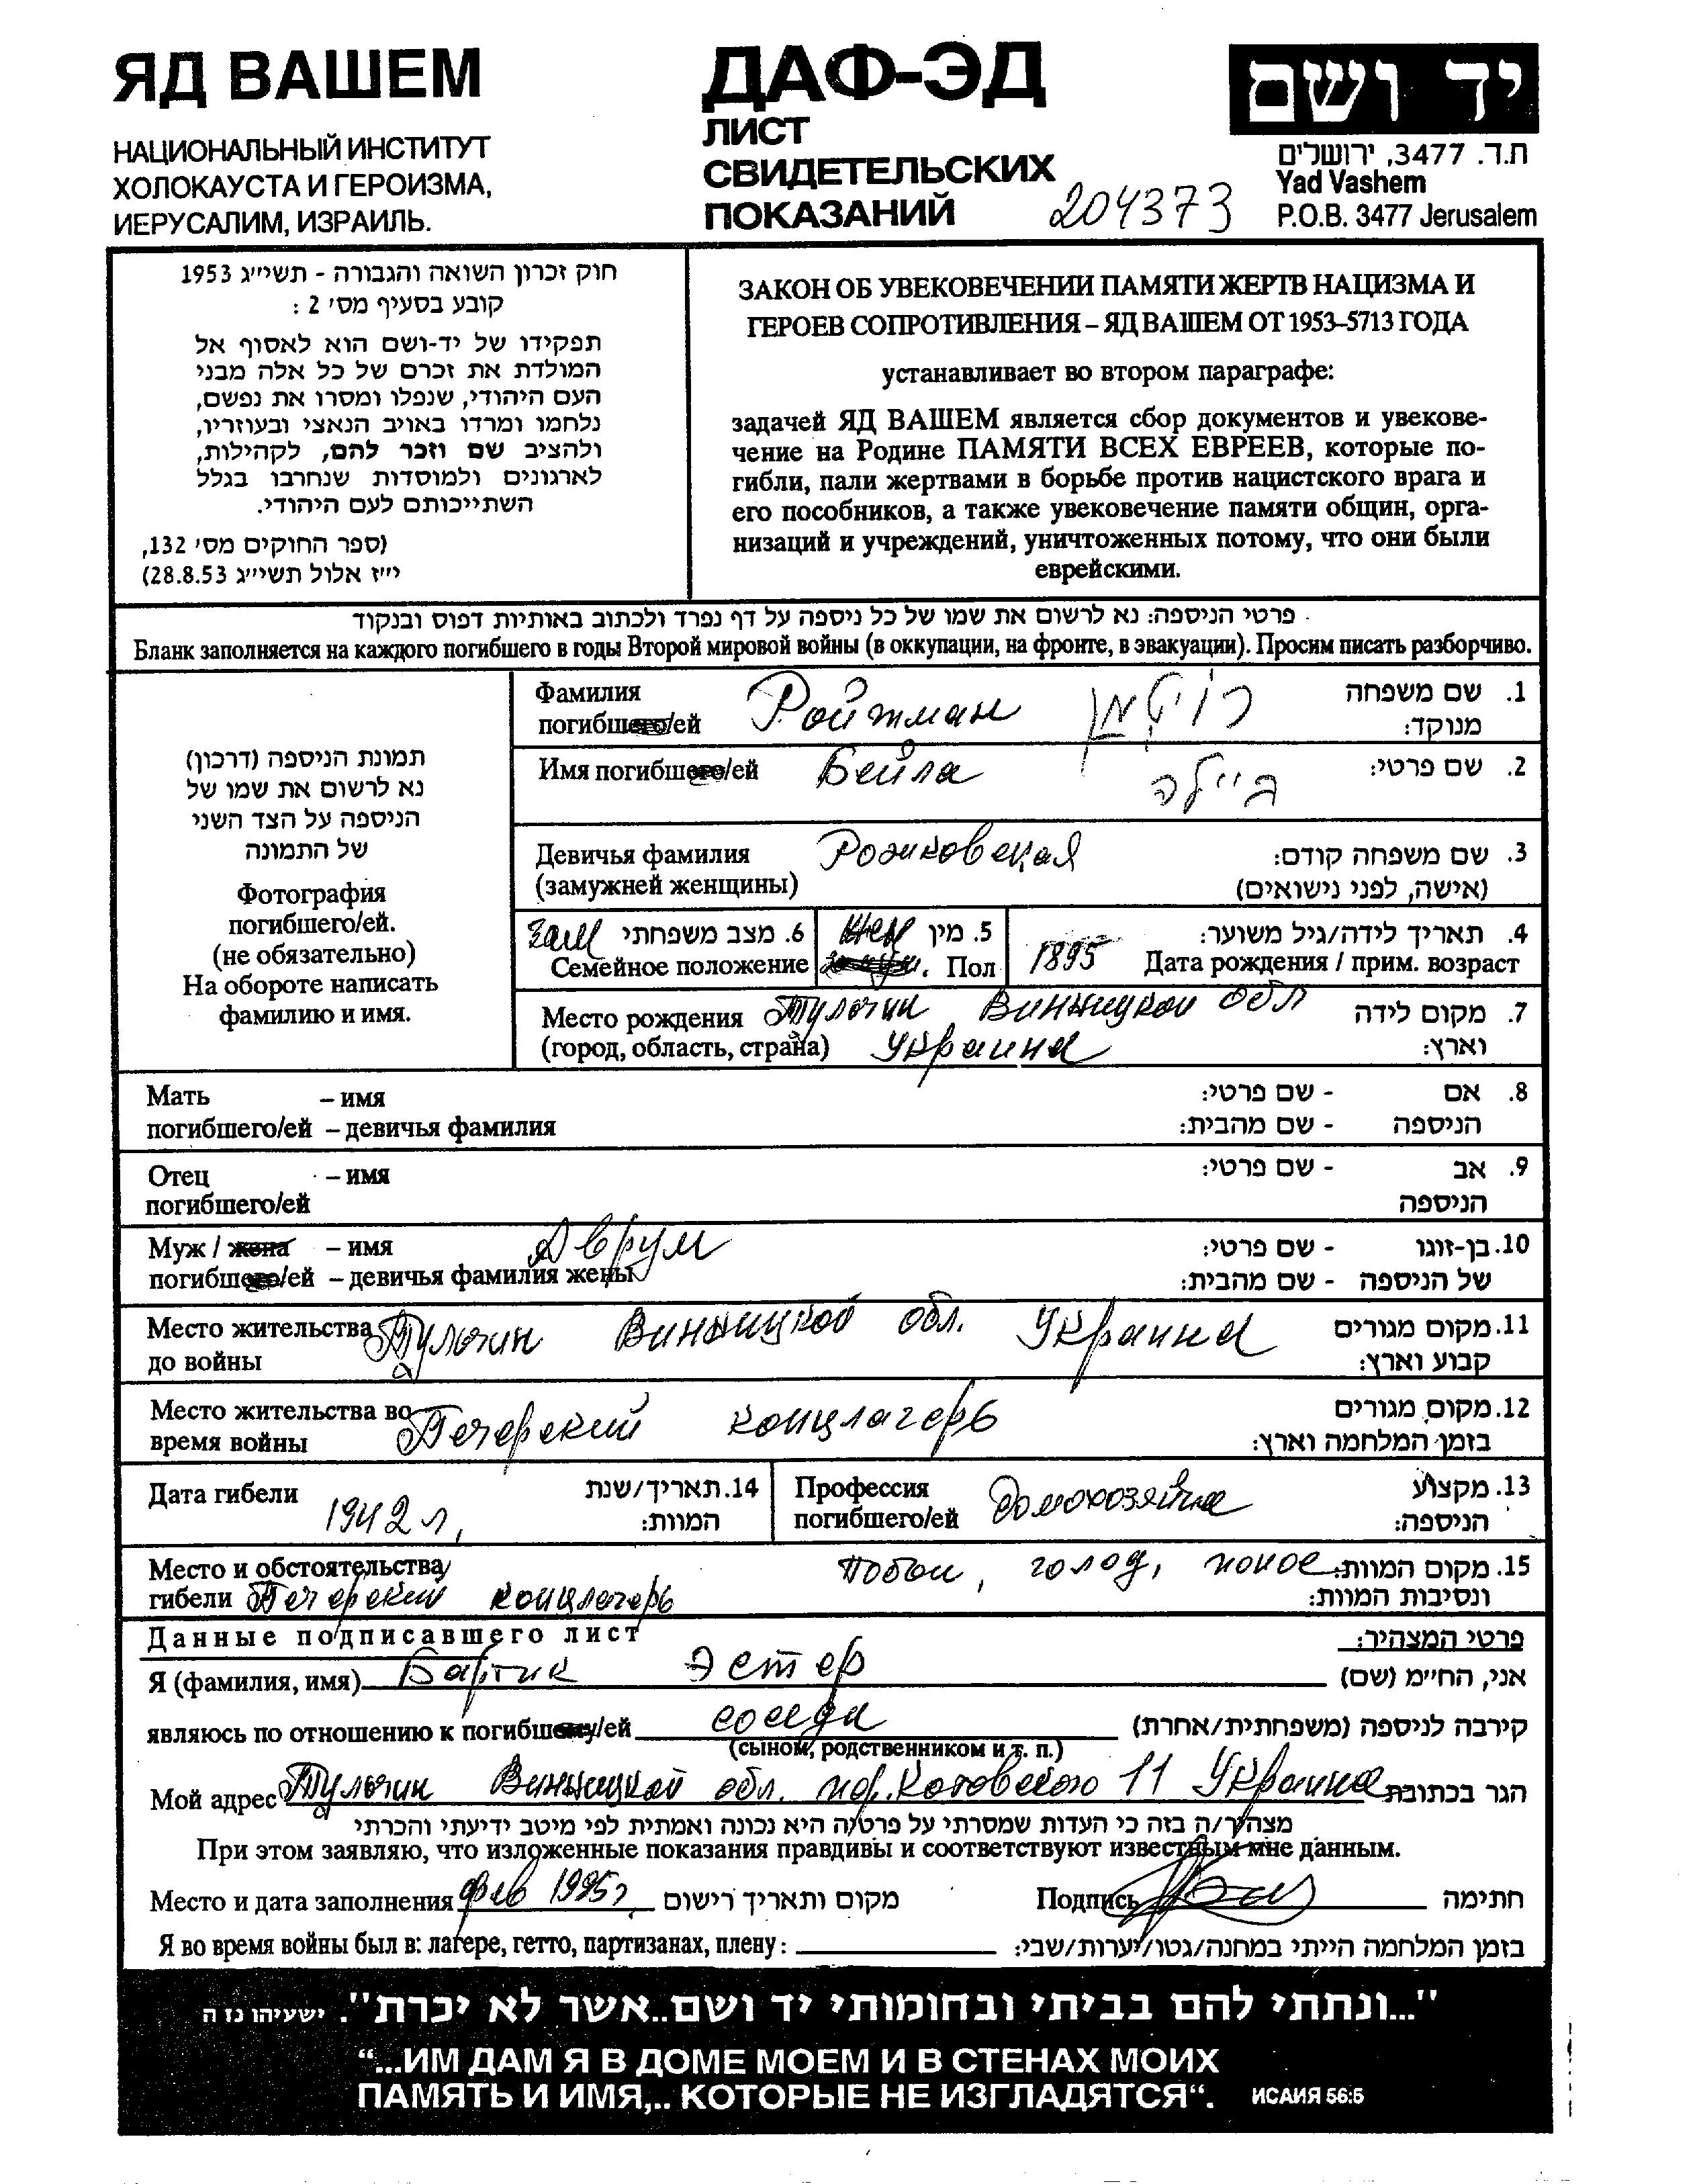 ЯД ВАШЕМ
НАЦИОНАЛЬНЫЙ ИНСТИТУТ
ХОЛОКАУСТА И ГЕРОИЗМА,
ИЕРУСАЛИМ, ИЗРАИЛЬ.
ДАФ-ЭД
ЛИСТ
СВИДЕТЕЛЬСКИХ
ПОКАЗАНИЙ 204373
יד ושם
ת.ד. 3477, ירושלים
Yad Vashem
P.O.B. 3477 Jerusalem
חוק זכרון השואה והגבורה - תשי״ג 1953
קובע בסעיף מס׳ 2 :
תפקידו של יד-ושם הוא לאסוף אל
המולדת את זכרם של כל אלה מבני
העם היהודי, שנפלו ומסרו את נפשם,
נלחמו ומרדו באויב הנאצי ובעוזריו,
ולהציב שם וזכר להם, לקהילות,
לארגונים ולמוסדות שנחרבו בגלל
השתייכותם לעם היהודי.
(ספר החוקים מס׳ 132,
י״ז אלול תשי״ג 28.8.53)
ЗАКОН ОБ УВЕКОВЕЧЕНИИ ПАМЯТИ ЖЕРТВ НАЦИЗМА И
ГЕРОЕВ СОПРОТИВЛЕНИЯ – ЯД ВАШЕМ ОТ 1953–5713 ГОДА
устанавливает во втором параграфе:
задачей ЯД ВАШЕМ является сбор документов и увекове-
чение на Родине ПАМЯТИ ВСЕХ ЕВРЕЕВ, которые по-
гибли, пали жертвами в борьбе против нацистского врага и
его пособников, а также увековечение памяти общин, орга-
низаций и учреждений, уничтоженных потому, что они были
еврейскими.
פרטי הניספה: נא לרשום את שמו של כל ניספה על דף נפרד ולכתוב באותיות דפוס ובנקוד
Бланк заполняется на каждого погибшего в годы Второй мировой войны (в оккупации, на фронте, в эвакуации). Просим писать разборчиво.
תמונת הניספה (דרכון)
נא לרשום את שמו של
הניספה על הצד השני
של התמונה
Фотография
погибшего/ей.
(не обязательно)
На обороте написать
фамилию и имя.
Фамилия Ройтман רויטמן 1. שם משפחה
погибшего/ей מנוקד:
Имя погибшего/ей Бейла ביילה 2. שם פרטי:
Девичья фамилия 3. שם משפחה קודם:
(замужней женщины) (אישה, לפני נישואים)
Зам 6. מצב משפחתי жен 5. מין 4. תאריך לידה/גיל משוער:
Семейное положение Пол 1895 Дата рождения / прим. возраст
Место рождения Тульчин Винницкой обл 7. מקום לידה
(город, область, страна) Украина וארץ:
Мать – имя 8. אם - שם פרטי:
погибшего/ей – девичья фамилия הניספה - שם מהבית:
Отец – имя 9. אב - שם פרטי:
погибшего/ей הניספה
Муж / жена – имя Аврум 10. בן-זוגו - שם פרטי:
погибшего/ей – девичья фамилия жены של הניספה - שם מהבית:
Место жительства Тульчин Винницкой обл. Украина 11. מקום מגורים
до войны קבוע וארץ:
Место жительства во Печерский концлагерь 12. מקום מגורים
время войны בזמן המלחמה וארץ:
Дата гибели 1942 г. 14. תאריך/שנת Профессия домохозяйка 13. מקצוע
המוות: погибшего/ей הניספה:
Место и обстоятельства Побои, голод, 15. מקום המוות:
гибели Печерский концлагерь ונסיבות המוות:
Данные подписавшего лист פרטי המצהיר:
Я (фамилия, имя) Бартик Эстер אני, הח״מ (שם)
являюсь по отношению к погибшему/ей соседа קירבה לניספה (משפחתית/אחרת)
(сыном, родственником и т. п.)
Мой адрес Тульчин Винницкой обл. Котовского 11 Украина הגר בכתובת
מצהיר/ה בזה כי העדות שמסרתי על פרטיה היא נכונה ואמתית לפי מיטב ידיעתי והכרתי
При этом заявляю, что изложенные показания правдивы и соответствуют известным мне данным.
Место и дата заполнения фев 1995г. מקום ותאריך רישום Подпись חתימה
Я во время войны был в: лагере, гетто, партизанах, плену: בזמן המלחמה הייתי במחנה/גטו/יערות/שבי:
"...ונתתי להם בביתי ובחומותי יד ושם..אשר לא יכרת". ישעיהו נז ה
“...ИМ ДАМ Я В ДОМЕ МОЕМ И В СТЕНАХ МОИХ
ПАМЯТЬ И ИМЯ,.. КОТОРЫЕ НЕ ИЗГЛАДЯТСЯ“. ИСАИЯ 56:5